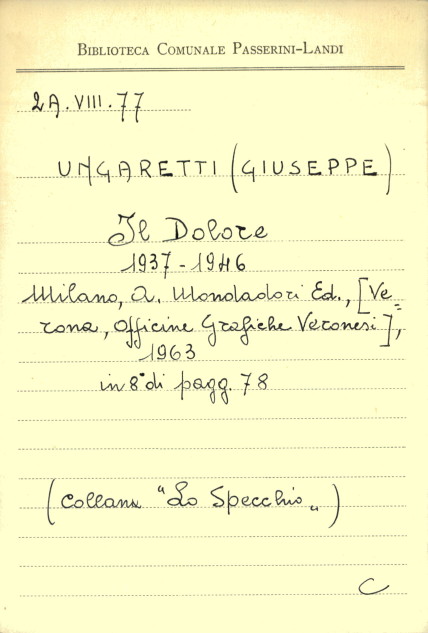 BIBLIOTECA COMUNALE PASSERINI-LANDI
2A.VIII.77
UNGARETTI (GIUSEPPE)
Il Dolore
1937-1946
Milano, A. Mondadori Ed., [Ve=
rona, Officine Grafiche Veronesi],
1963
in 8° di pagg. 78
(Collana "Lo Specchio„)
C